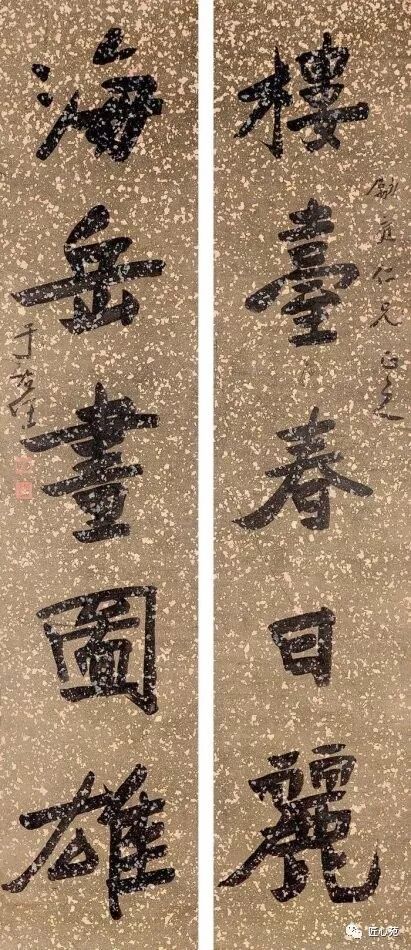 樓臺春日麗
仁兄正之
海岳畫圖雄
于
匠心苑